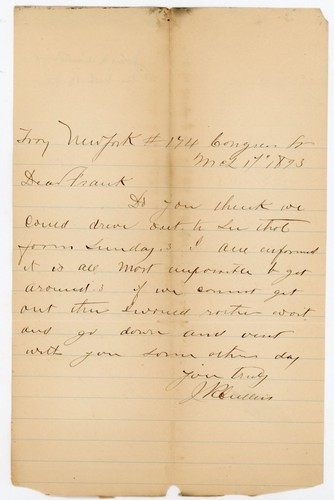 Troy New York # 174 Congress St
Mch 17 1893
Dear Frank
Do you think we
could drive out to see that
farm Sunday. I am informed
it is all most impossible to get
around. if we cannot get
out then I would rather wait
and go down and visit
with you some other day
your truly